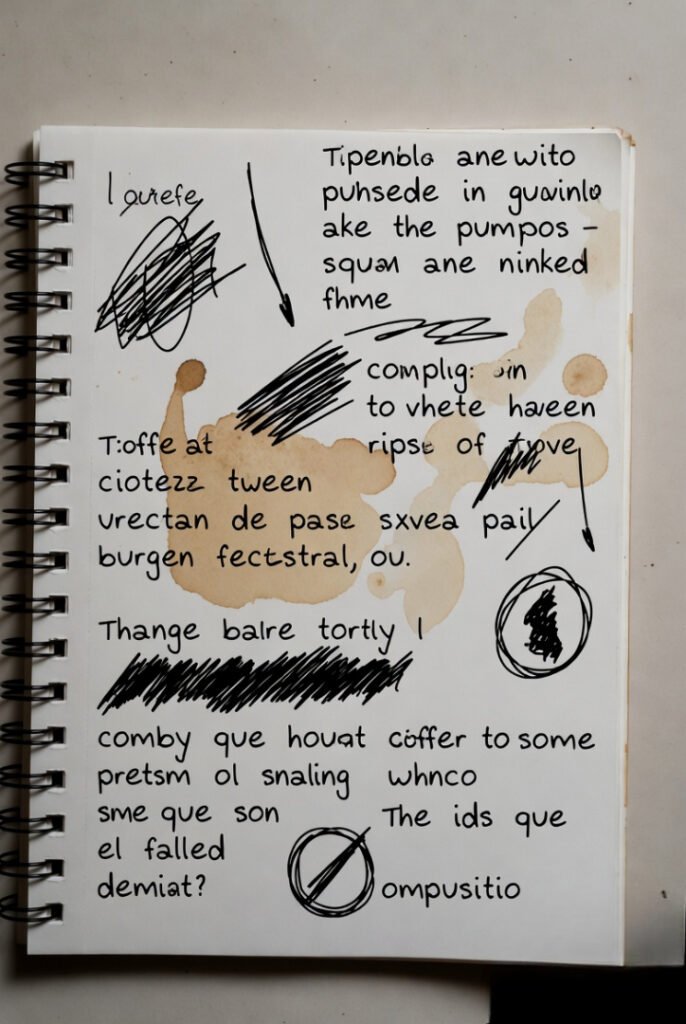 Tipenbla ane wito
puhsede in guainla
ake the pumpos –
squan ane ninked
fhme
complig: in
to vhete haveen
ripse of
T:offe at
ciotezz tween
vrectan de pase sxvea pail
burgen fectstral, ou.
Thange balre tortly I
comby que houat coffer to some
pretsm ol snaling whnco
sme que son
The ids que
el falled
demiat?
ompusitio